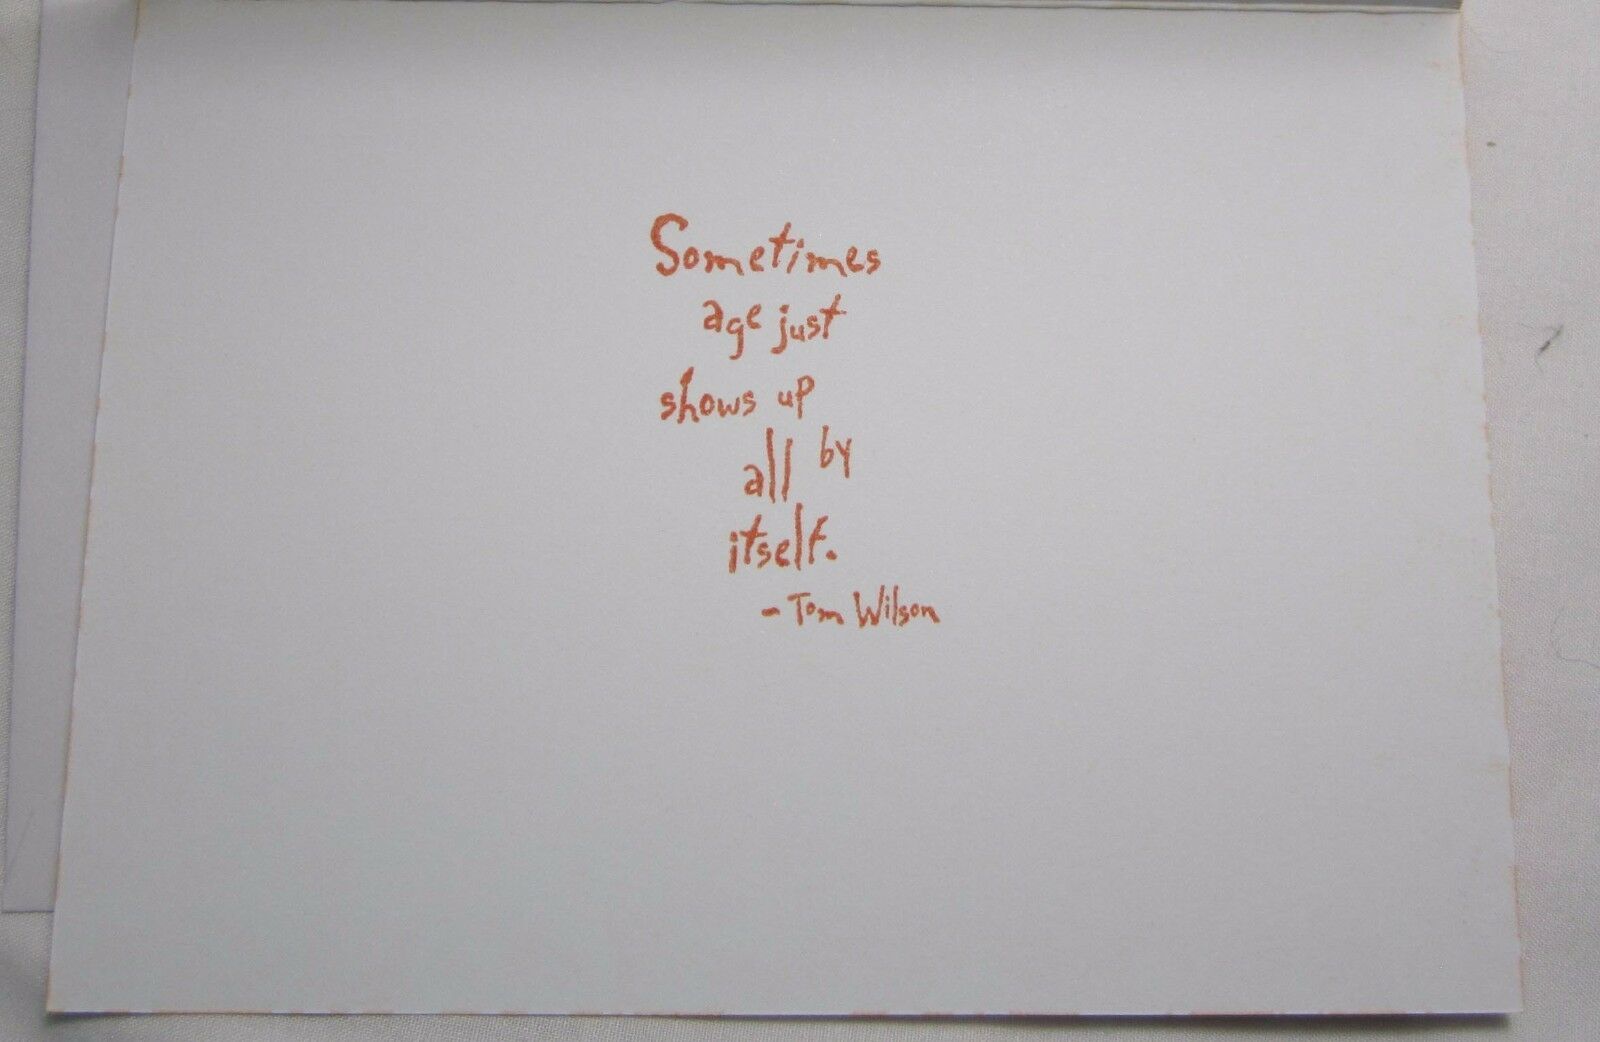 Sometimes
age just
shows up
all by
itself.
- Tom Wilson